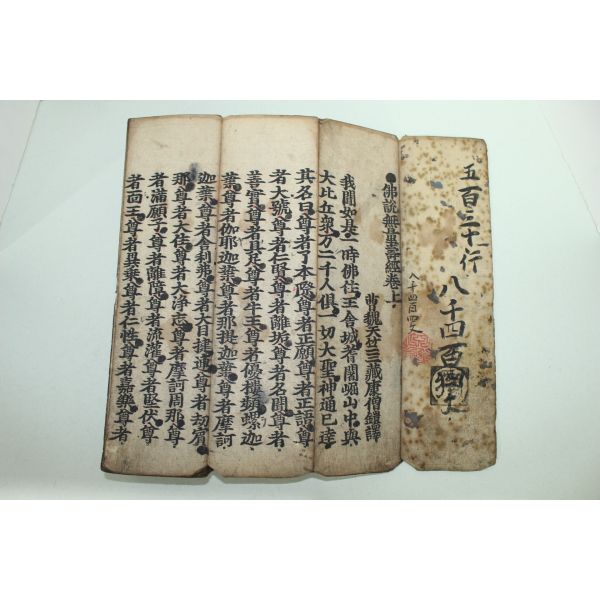 五百三十行
八千四百
八千四百四文
佛說無量壽經卷上
曹魏天竺三藏康僧鎧譯
我聞如是一時佛住王舍城耆闍崛山中與
大比丘眾万二千人俱一切大聖神通已達
其名曰尊者了本際尊者正願尊者正語尊
者大號尊者仁賢尊者離垢尊者名聞尊者
善實尊者具足尊者牛王尊者優樓頻螺迦
葉尊者伽耶迦葉尊者那提迦葉尊者摩訶
迦葉尊者舍利弗尊者大目揵連尊者劫賓
那尊者大住尊者大淨志尊者摩訶周那尊
者滿願子尊者離障尊者流灌尊者堅伏尊
者面王尊者異乘尊者仁性尊者嘉樂尊者